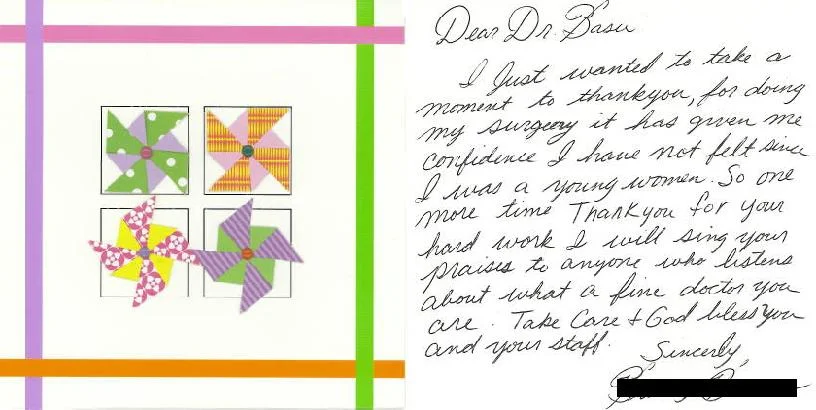 Dear Dr. Basu
I Just wanted to take a
moment to thankyou, for doing
my surgeory it has given me
confidence I have not felt since
I was a young women. So one
more time Thankyou for your
hard work I will sing your
praises to anyone who listens
about what a fine doctor you
are. Take Care + God bless you
and your staff.
Sincerly,